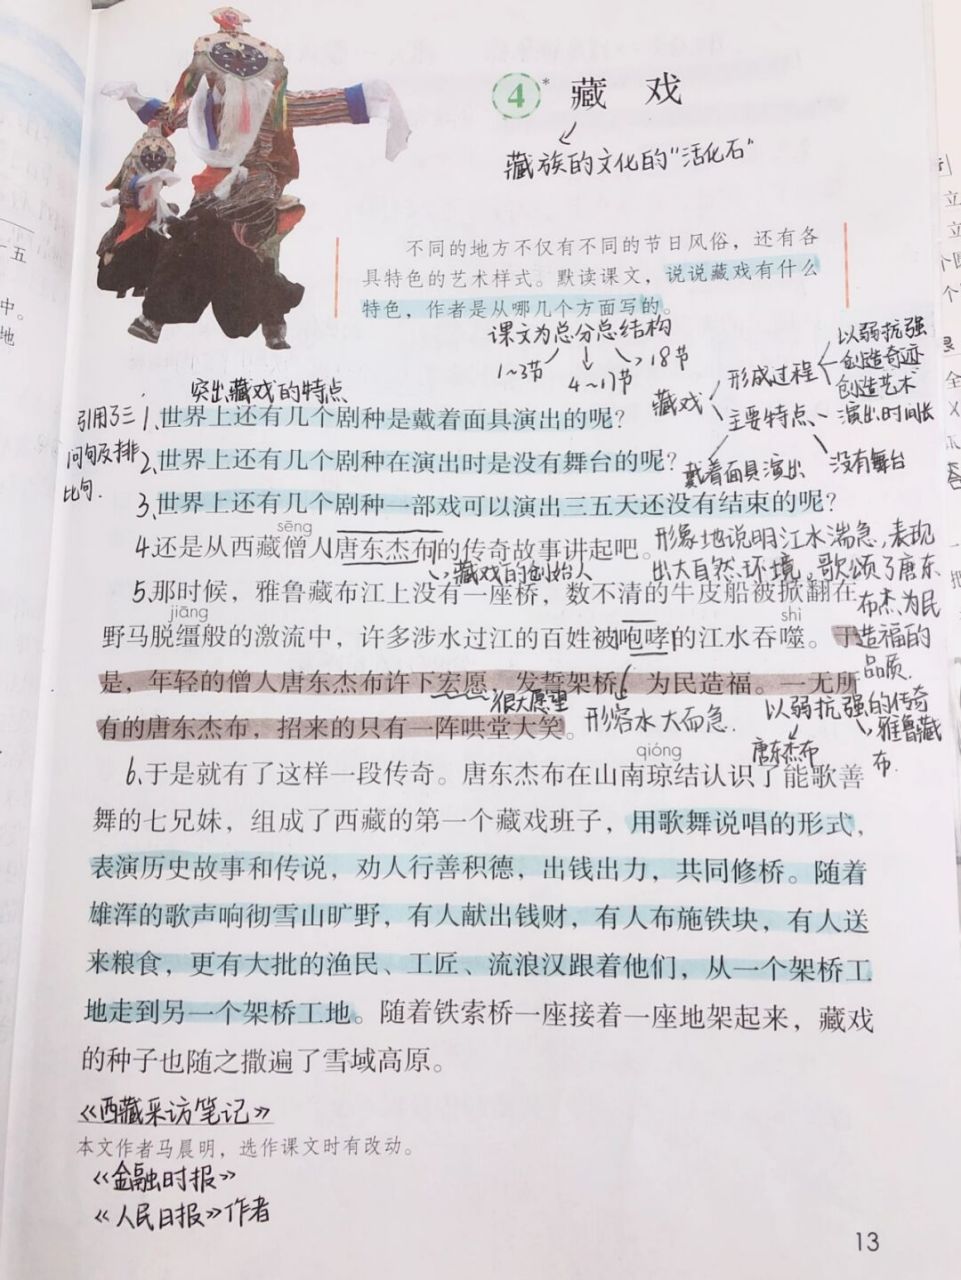 4* 藏 戏
藏族的文化的“活化石”
不同的地方不仅有不同的节日风俗，还有各
具特色的艺术样式。默读课文，说说藏戏有什么
特色，作者是从哪几个方面写的。
课文为总分总结构
1~3节
4~17节
18节
藏戏
形成过程
以弱抗强
创造奇迹
创造艺术
主要特点
演出时间长
戴着面具演出
没有舞台
突出藏戏的特点
引用了三
问句及排
比句.
1、世界上还有几个剧种是戴着面具演出的呢？
2、世界上还有几个剧种在演出时是没有舞台的呢？
3、世界上还有几个剧种一部戏可以演出三五天还没有结束的呢？
sēng
4.还是从西藏僧人唐东杰布的传奇故事讲起吧。
藏戏的创始人
形象地说明江水湍急，表现
出大自然环境。歌颂了唐东
布杰为民
造福的
品质.
5、那时候，雅鲁藏布江上没有一座桥，数不清的牛皮船被掀翻在
jiāng
shì
野马脱缰般的激流中，许多涉水过江的百姓被咆哮的江水吞噬。于
是，年轻的僧人唐东杰布许下宏愿，发誓架桥，为民造福。一无所
很大愿望
有的唐东杰布，招来的只有一阵哄堂大笑。
形容水大而急.
以弱抗强的传奇
唐东杰布
雅鲁藏
布.
qióng
6.于是就有了这样一段传奇。唐东杰布在山南琼结认识了能歌善
舞的七兄妹，组成了西藏的第一个藏戏班子，用歌舞说唱的形式，
表演历史故事和传说，劝人行善积德，出钱出力，共同修桥。随着
雄浑的歌声响彻雪山旷野，有人献出钱财，有人布施铁块，有人送
来粮食，更有大批的渔民、工匠、流浪汉跟着他们，从一个架桥工
地走到另一个架桥工地。随着铁索桥一座接着一座地架起来，藏戏
的种子也随之撒遍了雪域高原。
《西藏采访笔记》
本文作者马晨明，选作课文时有改动。
《金融时报》
《人民日报》作者
13
五
中。
地